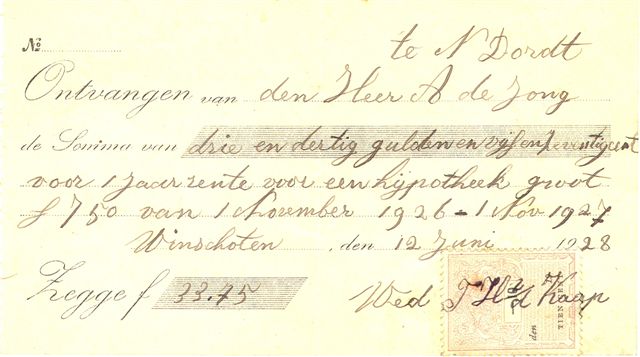 No
te N Dordt
Ontvangen van den Heer A de Jong
de Somma van drie en dertig gulden en vijf en zeventig cent
voor 1 Jaar rente voor een hypotheek groot
f 750 van 1 November 1926 - 1 Nov 1927
Winschoten, den 12 Juni 1928
Zegge f 33.75 Wed
den
TIEN